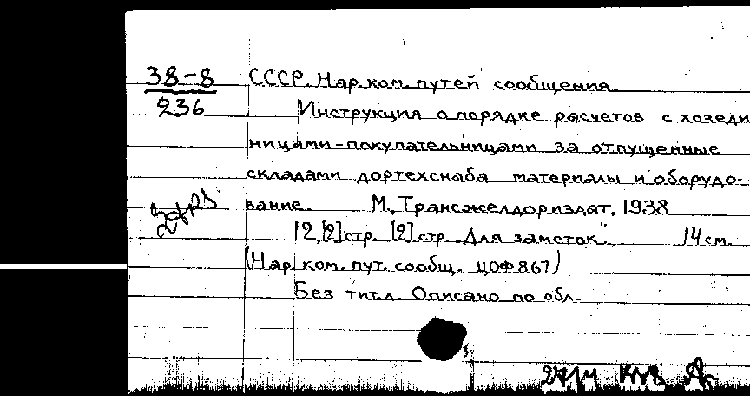 38-8
236
СССР. Нар. ком. путей сообщения.
Инструкция о порядке расчетов с хозеди
ницами-покупательницами за отпущенные
складами дортехснаба материалы и оборудо-
вание. М., Трансжелдориздат, 1938
12, [2] стр. [2] стр. „Для заметок". 14 см.
(Нар. ком. пут. сообщ. ЦОФ 867)
Без тит. л. Описано по обл.